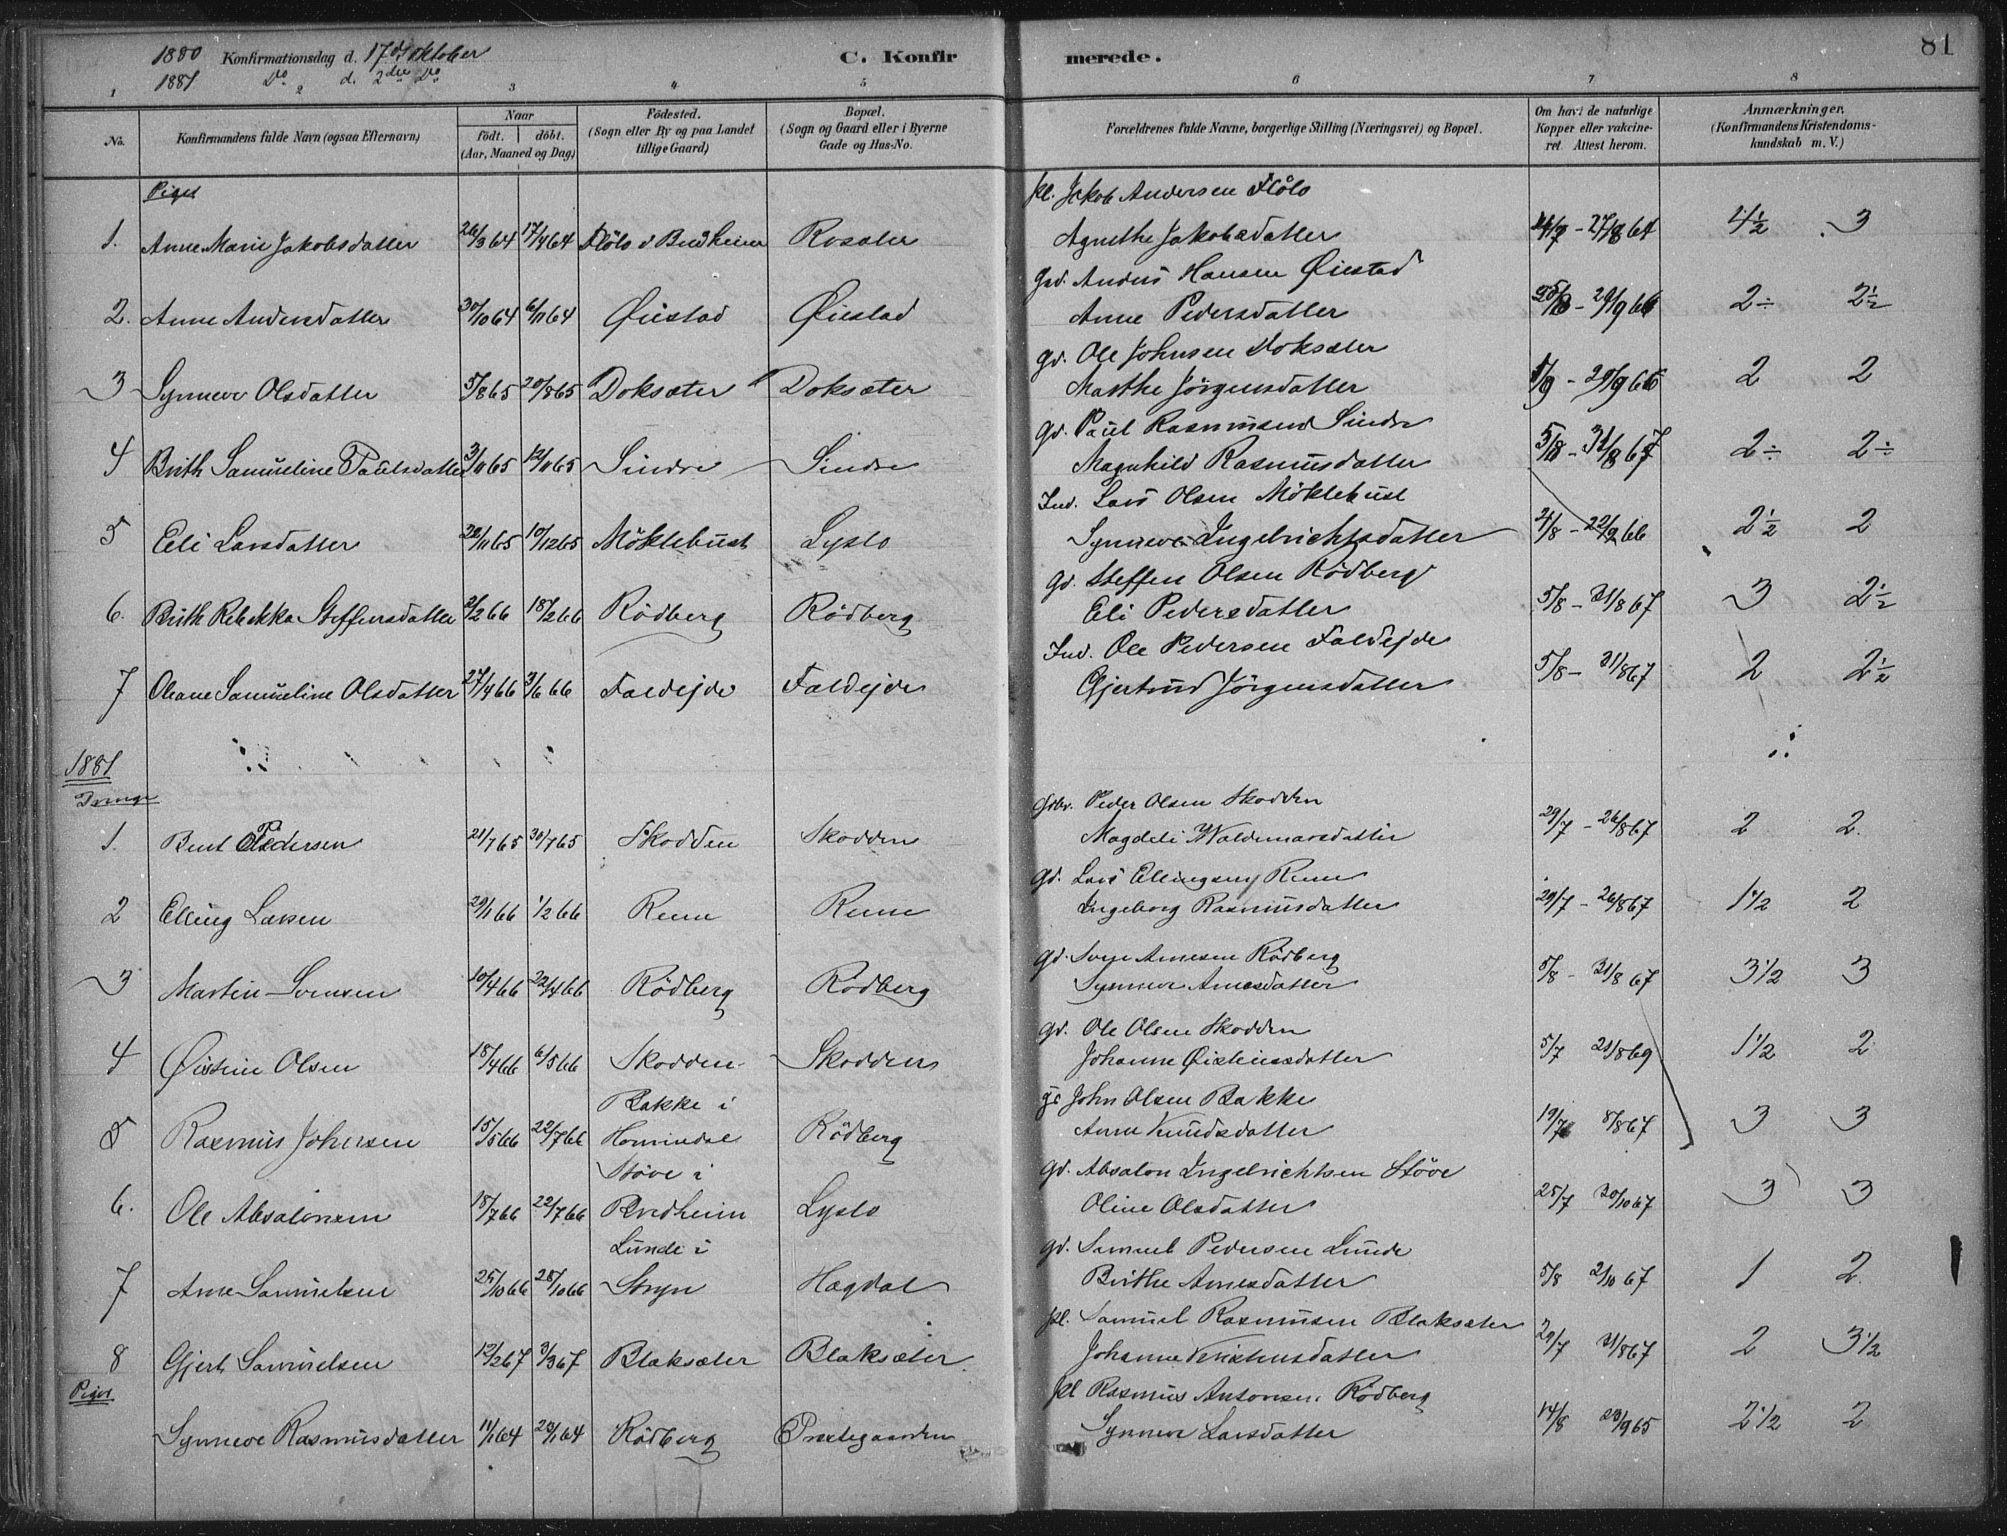 81
1880 Konfirmationsdag d. 17de Oktober C. Konfirmerede.
1881 Do d. 2den Do
1 2 3 4 5 6 7 8
No.
Konfirmandens fulde Navn (ogsaa Efternavn)
Naar
födt. döbt.
(Aar, Maaned og Dag)
Födested.
(Sogn eller By og paa Landet
tillige Gaard)
Bopæl.
(Sogn og Gaard eller i Byerne
Gade og Hus-No.
Forældrenes fulde Navne, borgerlige Stilling (Næringsvei) og Bopæl.
Om havt de naturlige
Kopper eller vakcine-
ret. Attest herom.
Anmærkninger.
(Konfirmandens Kristendoms-
kundskab m. V.)
Piger
pl. Jakob Andersen Flölo
1. Anne Marie Jakobsdatter 26/3 64 17/4 64 Flölo i Bredheim Rosæter Agnethe Jakobsdatter 27/8 64 4½ 3
Gd. Anders Hansen Öiestad
2. Anne Andersdatter 30/10 64 6/11 64 Öiestad Öiestad Anne Pedersdatter 2÷ 2½
gd. Ole Johnsen Doksæter
3 Synneve Olsdatter 5/8 65 20/8 65 Doksæter Doksæter Marthe Jörgensdatter 2 2
gd. Paul Rasmusen Sindre
4 Brith Samueline Paulsdatter 3/11 65 12/11 65 Sindre Sindre Magnhild Rasmusdatter 5/8 - 31/8 67 2÷ 2÷
Ind. Lars Olsen Möklebust
5 Eli Larsdatter 10/12 65 Möklebust Lyslo Synneve Ingebrichtsdatter 22/9 66 2½ 2
gd. Steffen Olsen Rödberg
6. Brith Rebekka Steffensdatter 2/2 66 18/2 66 Rödberg Rödberg Eli Pedersdatter 5/8 - 31/8 67 3 2½
Ind. Ole Pedersen Faldejde
7 Oleane Samueline Olsdatter 27/4 66 3/6 66 Faldejde Faldejde Gjertrud Jörgensdatter 5/8 - 31/8 67 2 2½
1881
Drenge
Peder Olsen Skodden
1. Bent Pedersen 21/7 65 30/7 65 Skodden Skodden Magdeli Waldemarsdatter 29/7 - 26/8 67 2 2.
gd. Lars Ellingsen Reme
2 Elling Larsen 29/1 66 1/2 66 Reme Reme Ingeborg Rasmusdatter 29/7 - 26/8 67 1½ 2
gd. Sven Arnesen Rödberg
3 Martin Svensen 10/4 66 22/4 66 Rödberg Rödberg Synneve Arnesdatter 5/8 - 31/8 67 3½ 3
gd. Ole Olsen Skodden
4 Öistein Olsen 18/4 66 6/5 66 Skodden Skodden Johanne Öisteinsdatter 5/7 21/8 69 1½ 2
John Olsen Bakke
5 Rasmus Johnsen 15/5 66 22/7 66 Bakke i Hornindal Rödberg Anne Knudsdatter 8/8 67 3 3
gd. Absalon Ingebrichtsen Störe
6. Ole Absalonsen 18/7 66 22/7 66 Störe i Bredheim Lyslo Oline Olsdatter 25/7 30/10 67 3 3
gd. Samuel Pedersen Lunde
7 Arne Samuelsen 25/10 66 28/10 66 Lunde i Stryn Hagdal Brithe Arnesdatter 5/8 2/10 67 1 2
pl. Samuel Rasmusen Blaksæter
8 Gjert Samuelsen 12/2 67 3/3 67 Blaksæter Blaksæter Johanne Kristensdatter 29/7 31/8 67 2 3½
Piger
pl Rasmus Antonsen Rödberg
Synneve Rasmusdatter 11/1 64 24/1 64 Rödberg Præstegaarden Synneve Larsdatter 14/8 23/9 65 2½ 2